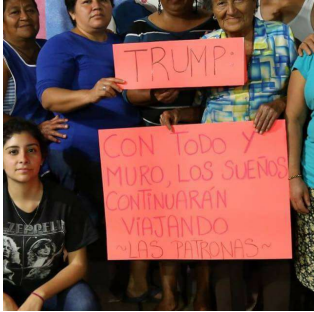 TRUMP.
CON TODO Y
MURO, LOS SUEÑOS
CONTINUARÁN
VIAJANDO
~LAS PATRONAS~
ZEPPELI